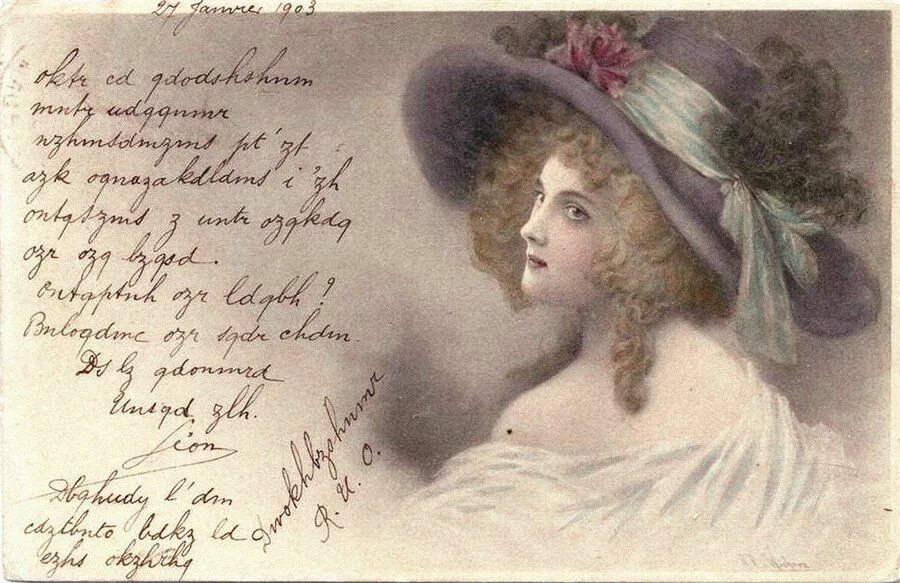 27 Janvier 1903
oktr cd qdodshshnm
mntr udqqnmr
lzhmsdmzms pt' zt
azk oqnazakdldms i 'zh
ontqszms z untr ozqkdq
ozr ozq bzqsd.
Ontqptnh ozr ldqbh ?
Bnloqdmc ozr sqdr ahdm.
Ds lz qdonmrd
Unsqd zlh.
Léon
Dbqhudy l'dm
adztbnto bdkz ld
ezhs okzhrhq
Dwokhbzshnmr
R. U. O.